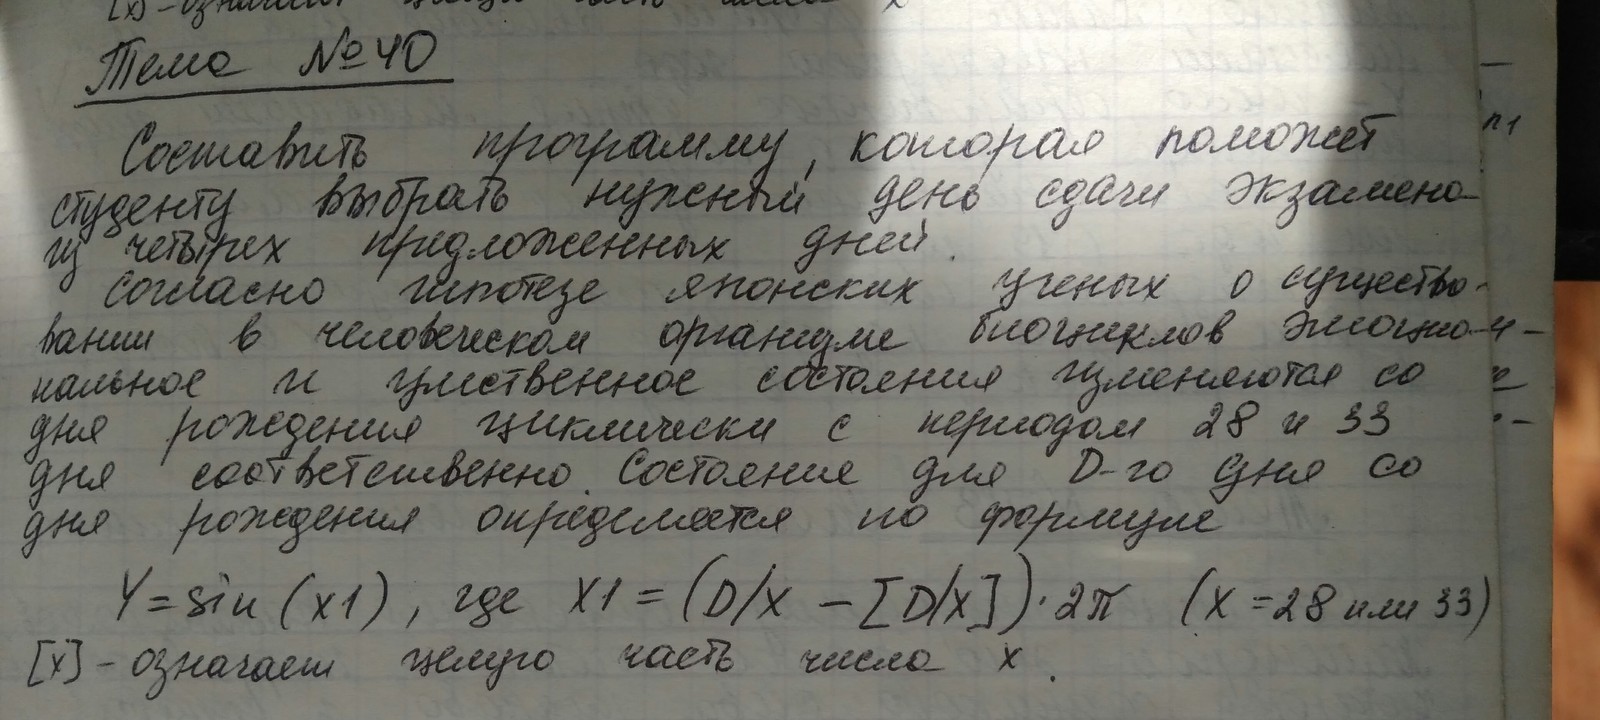 [x] - означает целую часть числа x
Тема №40
Составить программу, которая поможет
студенту выбрать нужный день сдачи экзамена
из четырех предложенных дней.
Согласно гипотезе японских ученых о существо-
вании в человеческом организме биоциклов эмоцио-
нальное и умственное состояния изменяются со
дня рождения циклически с периодом 28 и 33
дня соответственно. Состояние для D-го дня со
дня рождения определяется по формуле
Y = sin (x1), где X1 = (D/X - [D/X]) · 2π (X = 28 или 33)
[x] - означает целую часть числа x.